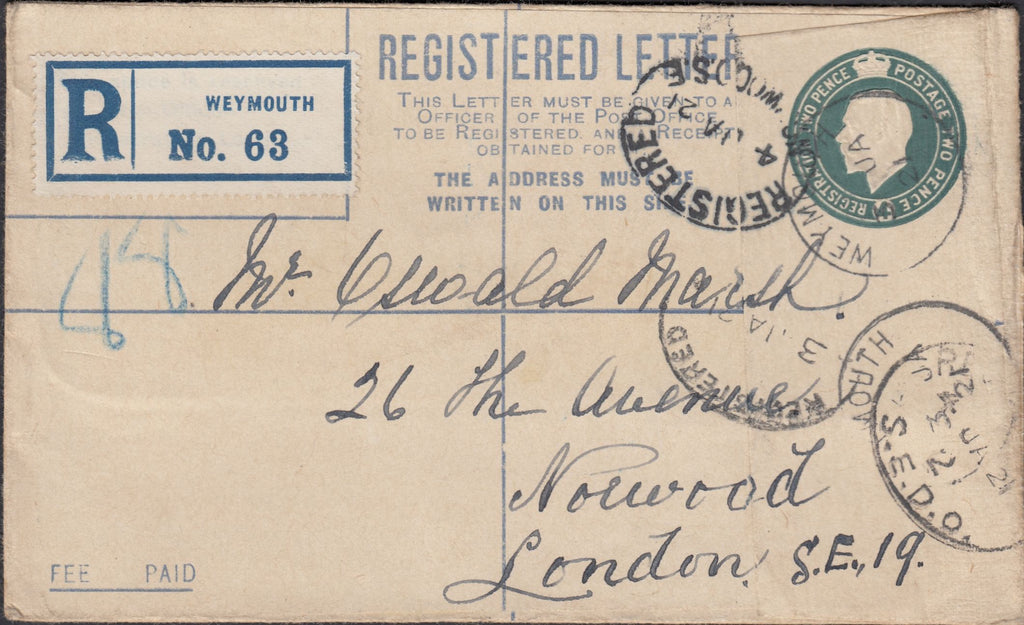 REGISTERED LETTER
THIS LETTER MUST BE GIVEN TO A
OFFICER OF THE POST OFFICE
TO BE REGISTERED, AND A RECEIPT
OBTAINED FOR
THE ADDRESS MUST BE
WRITTEN ON THIS SI
R
WEYMOUTH
No. 63
POSTAGE TWO PENCE
REGISTRATION TWO PENCE
REGISTERED
4 JA 21
WOOD S.E.
WEYM
JA
21
Mr. Oswald Marsh
26 The Avenue
Norwood
London, S.E., 19.
REGISTERED
3 JA 21
OUTH
JA 21
S.E.D.O.
FEE PAID